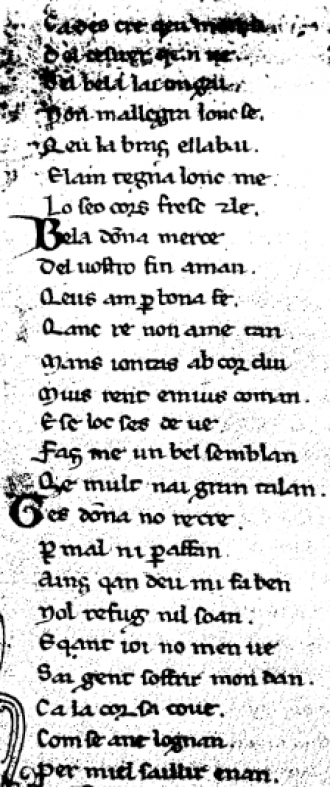 Cades cre qeu
Del
Del bela
Non mallegra lonc se.
Qeu la braz
E lam tegna lonc me
Lo seo cors fresc ⁊ le.
Bela dõna merce
Del uostro fin aman.
Qeus am ꝑ bona fe.
Qanc re non ame tan
Mans iontas ab cor cliu
Muis rent emius coman.
E se loc ses de ue
Faç me un bel semblan
Qe mult nai gran talan.
Ges dõna no recre.
ꝑ mal ni ꝑ affan
Ainç qan deu mi fa ben
Nol refug nil soan.
E qant ioi no men ue
Sai gent soffrir mon dan.
Ca la cor sa coue.
Com se ane lognan.
Per miel saillir enan.